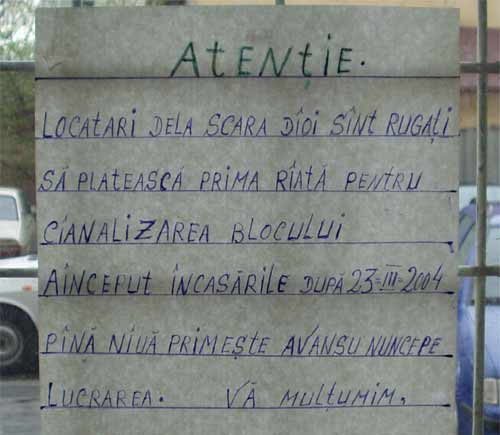 ATENȚIE.
LOCATARI DELA SCARA DÎOI SÎNT RUGAȚI
SĂ PLATEASCĂ PRIMA RÎATĂ PENTRU
CÎANALIZAREA BLOCULUI
AÎNCEPUT ÎNCASĂRILE DUPĂ 23-III-2004
PÎNĂ NIUĂ PRIMEȘTE AVANSU NUNCEPE
LUCRAREA. VĂ MULȚUMIM.